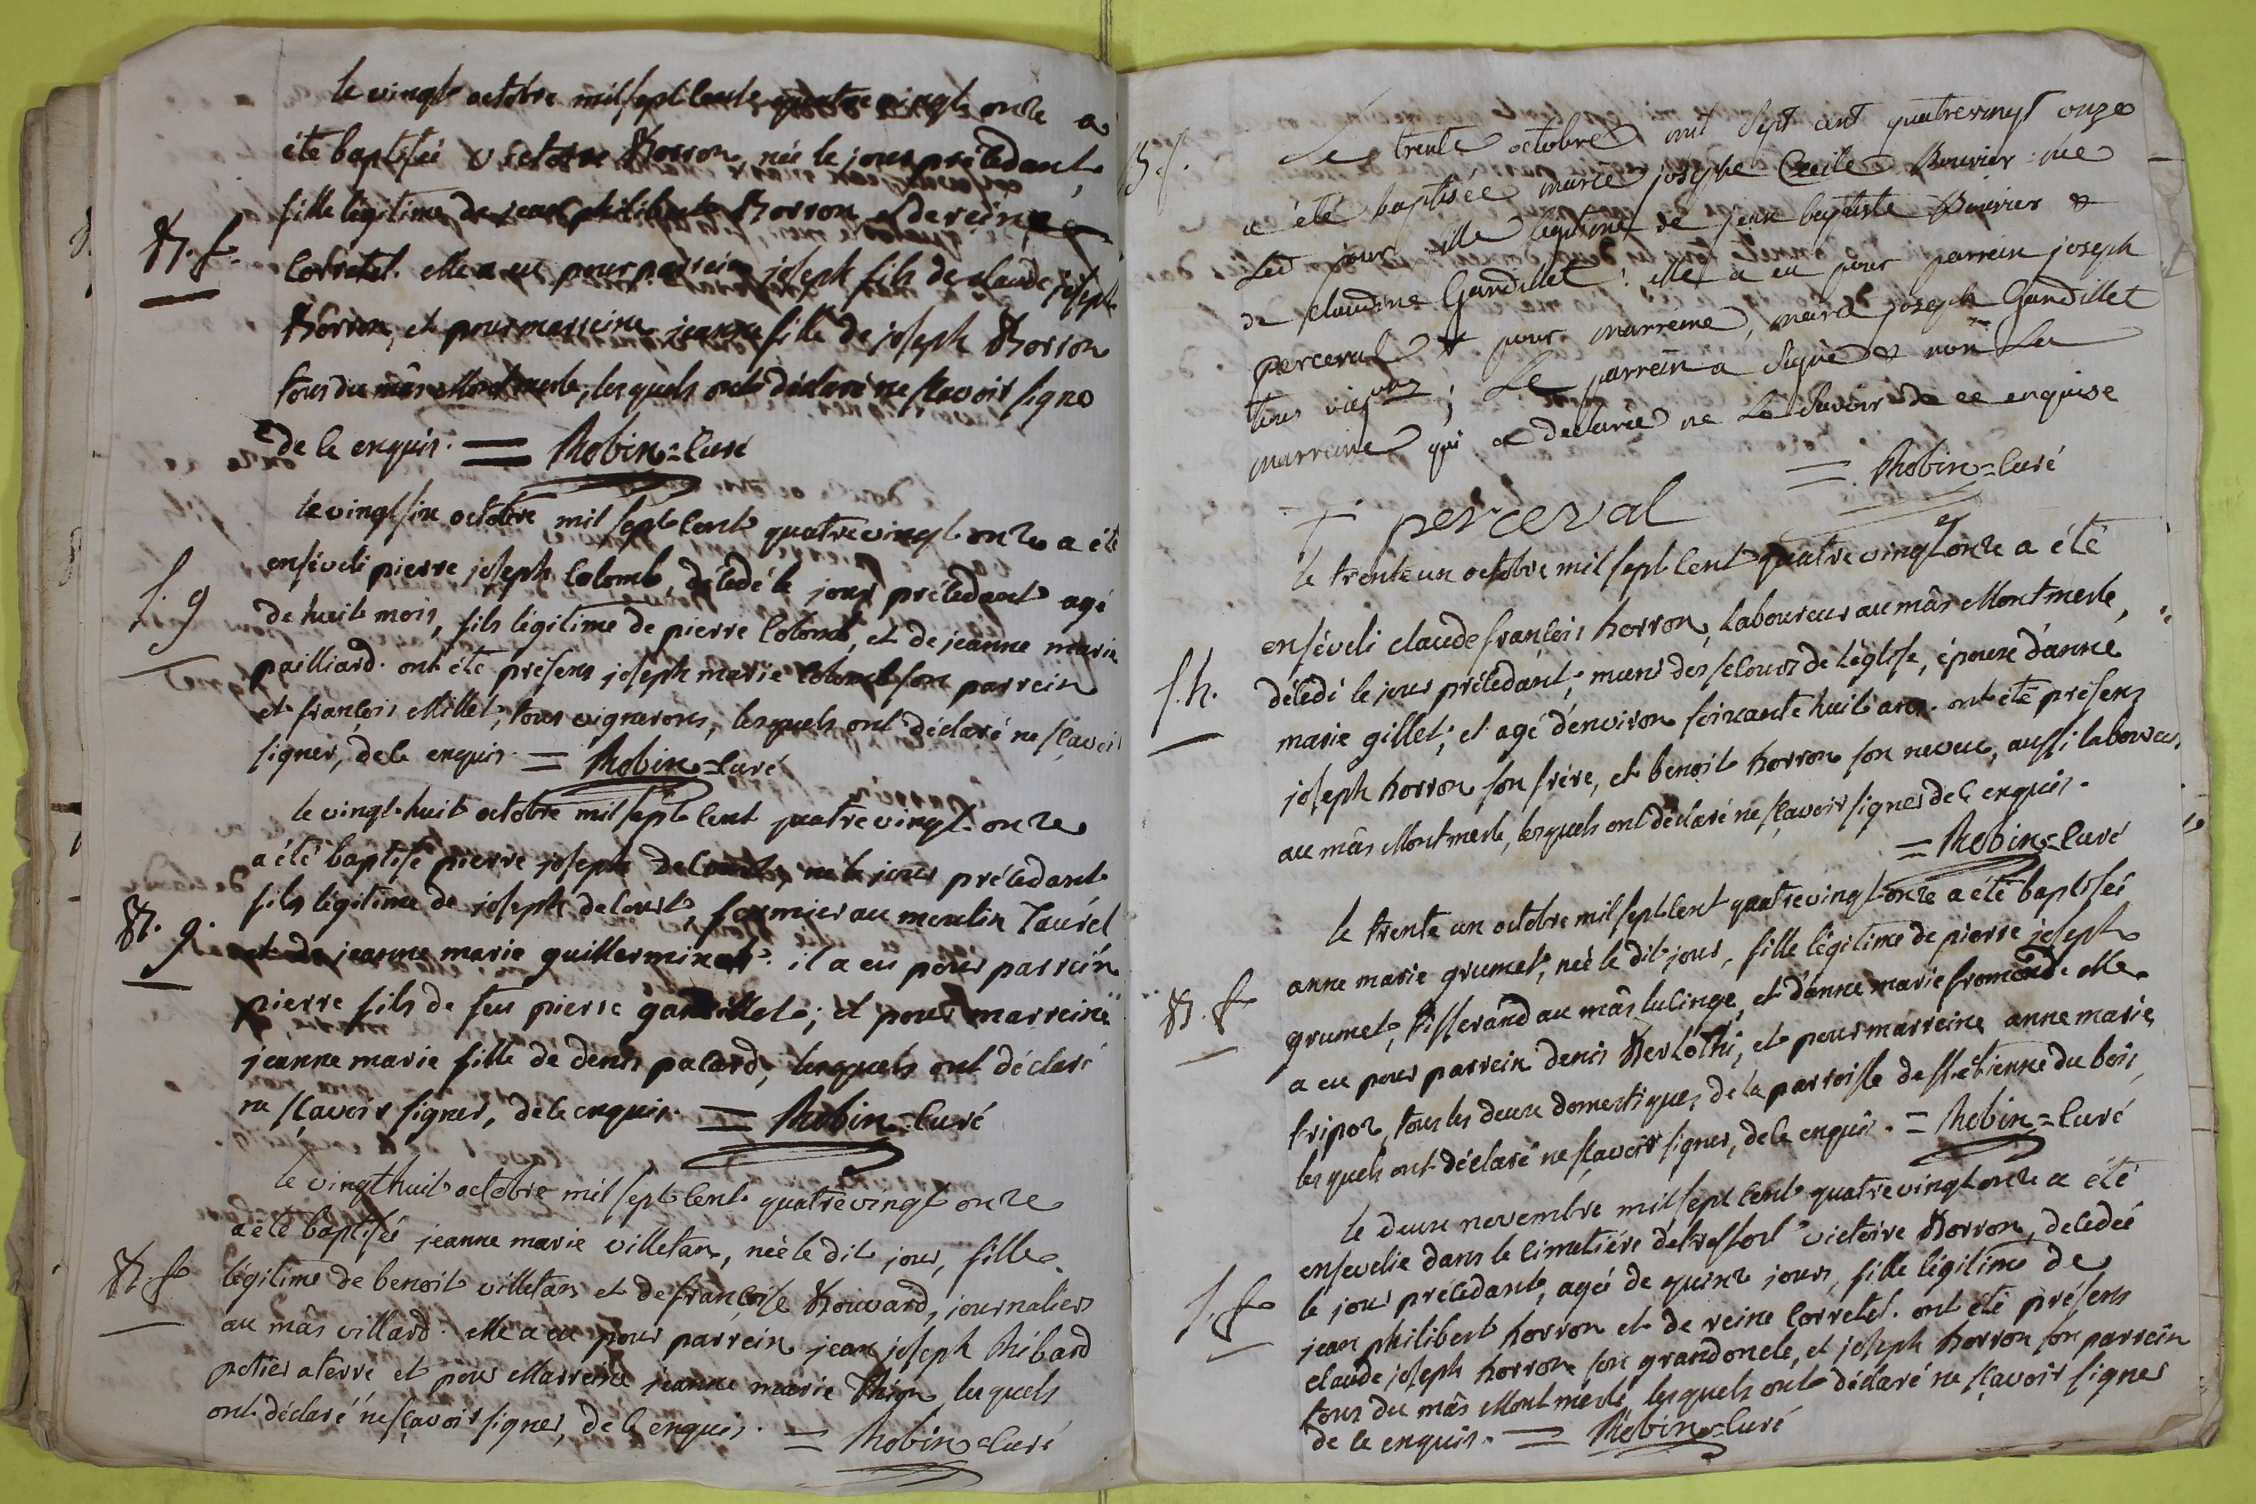 le vingt octobre mil sept cents quatre vingt onze a
été baptisée victoire Borron, née le jour précedant,
fille légitime de jean philibert Borron et de reine
B. f.
Corretel. elle a eu pour parrein joseph fils de claude joseph
Borron, et pour marreine jeanne fille de joseph Borron
tous du mâs Montmerle, lesquels ont déclaré ne sçavoir signe
de ce enquis. = Robin = Curé
le vingt six octobre mil sept cent quatre vingt onze a été
enséveli pierre joseph Colomb, décédé le jour précedant agé
S. g
de huit mois, fils légitime de pierre Colomb, et de jeanne marie
pailliard. ont été présens joseph marie Colomb son parrein
et françois Millet, tous vignerons, lesquels ont déclaré ne sçavoir
signer, de ce enquis = Robin = Curé
le vingt-huit octobre mil sept cent quatre vingt onze
a été baptisé pierre joseph né le jour précedant
fils légitime de joseph decourt, fermier au moulin Taurel
B. g.
et de jeanne marie guillerminet. il a eu pour parrein
pierre fils de feu pierre gandillet; et pour marreine
jeanne marie fille de denis pacard, lesquels ont déclaré
ne sçavoir signer, de ce enquis. = Robin = Curé
le vingt huit octobre mil sept cent quatre vingt onze
a été baptisée jeanne marie villetan, née le dit jour, fille
B. f.
légitime de benoit villetan et de françoise Bouvard, journaliers
au mâs villard. elle a eu pour parrein jean joseph hibard
potier a terre et pour Marreine jeanne marie lesquels
ont déclaré ne sçavoir signer, de ce enquis. = Robin = Curé
B. f.
Le trente octobre mil sept cent quatrevingt onze
a été baptisée marie josephe Cecile Bouvier née
led jour fille légitime de jean baptiste Bouvier &
de claudine Gandillet: elle a eu pour parrein joseph
perceval & pour marreine, marie joseph Gandillet
tous ; Le parrein a signé & non La
marreine qui a declaré ne Le savoir de ce enquise
= Robin = Curé
perceval
le trente un octobre mil sept cent quatre vingt onze a été
enséveli claude françois horron, laboureur au mâs Montmerle,
S. h.
décédé le jour précedant; muni des secours de l'église, époux d'anne
marie gillet; et agé d'environ soixante huit ans. ont été présens
joseph horron son frère, et benoit horron son neveu, aussi laboureur
au mâs Montmerle, lesquels ont déclaré ne sçavoir signer de ce enquis.
= Robin = Curé
le trente un octobre mil sept cent quatre vingt onze a été baptisée
B. f
anne marie grumet, née le dit jour, fille légitime de pierre joseph
grumet, tisserand au mâs lucinge, et d'anne marie fromond. elle
a eu pour parrein denis Berlothi, et pour marreine anne marie
tripoz, tous les deux domestiques de la parroisse de st. etienne du bois,
lesquels ont déclaré ne sçavoir signer, de ce enquis. = Robin = Curé
le deux novembre mil sept cent quatre vingt onze a été
ensevelie dans le cimetiére victoire Borron, décedée
S. f
le jour précedant, agée de quinze jours, fille légitime de
jean philibert horron et de reine Corretel. ont été présens
claude joseph horron son grand oncle, et joseph horron son parrein
tous du mâs Montmerle, lesquels ont déclaré ne sçavoir signer
de ce enquis. = Robin = Curé